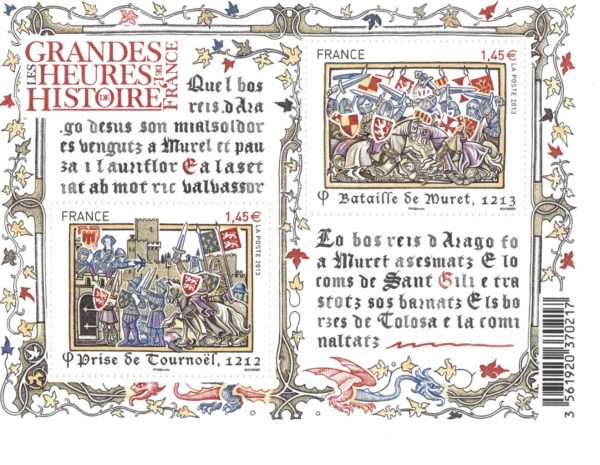 LES GRANDES
HEURES DE L'
HISTOIRE DE FRANCE
Quel bos
reis d'Ara
go desus son mialsoldor
es vengutz a Murel et pau
za i l auriflor E a la set
iat ab mot ric valvassor
FRANCE 1,45€
LA POSTE 2013
φ Bataille de Muret, 1213
Phil@poste BOURSIER
FRANCE 1,45€
LA POSTE 2013
φ Prise de Tournoël, 1212
Phil@poste BOURSIER
Lo bos reis d'Arago fo
a Muret asesmatz E lo
coms de Sant Gili e tra
stotz sos barnatz Els bo
rzes de Tolosa e la comi
naltatz
3 561920 370217